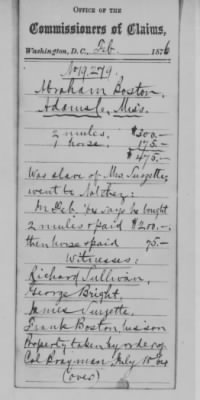 OFFICE OF THE
Commissioners of Claims,
Washington, D.C., Feb 1876
No 19.279.
Abraham Boston.
Adams Co, Miss.
2 mules. $300.—
1 horse. 175.—
$475.—
Was slave of Mrs. Surgette.
went to Natchez:
In Feb. '64 says he bought
2 mules & paid $200.—
then horse & paid 75.—
Witnesses:
Richard Sullivan,
George Bright,
James Surgette,
Frank Boston, his son
Property taken by order of
Col Brayman, July 18' 64
(over)